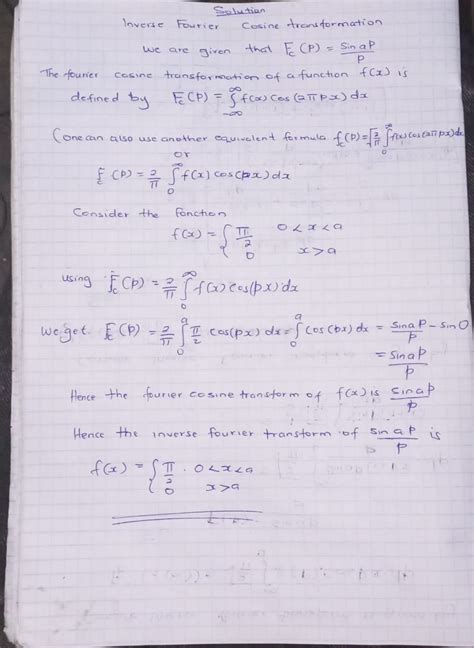 Solution
Inverse Fourier Cosine transformation
We are given that Fc(P) = Sin aP/P
The fourier cosine transformation of a function f(x) is
defined by Fc(P) = ∫_{-∞}^{∞} f(x) Cos(2πpx) dx
(one can also use another equivalent formula fc(P) = √(2/π) ∫_0^∞ f(x) cos(2πpx) dx
or
Fc(P) = 2/π ∫_0^∞ f(x) cos(px) dx
Consider the Fonction
f(x) = { π/2 0<x<a
0 x>a
using Fc(P) = 2/π ∫_0^∞ f(x) cos(px) dx
We get. Fc(P) = 2/π ∫_0^a π/2 cos(px) dx = ∫_0^a cos(px) dx = sin aP/P - sin 0
= sin aP/P
Hence the fourier cosine transform of f(x) is sin aP/P
Hence the inverse fourier transform of sin aP/P is
f(x) = { π/2 . 0<x<a
0 x>a